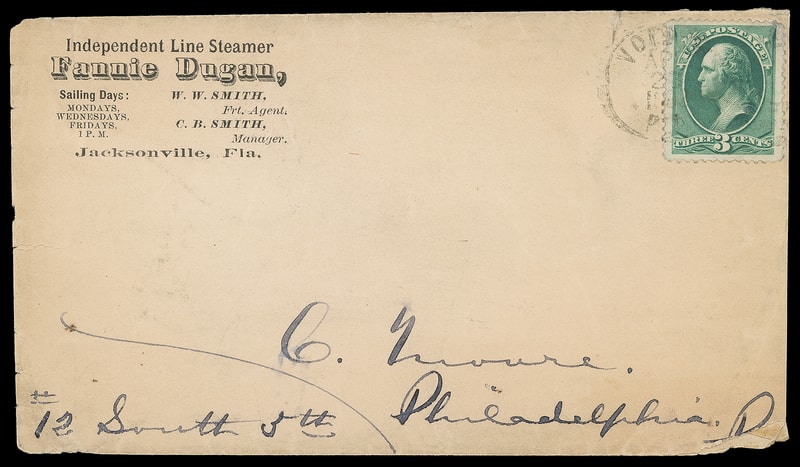 Independent Line Steamer
Fannie Dugan,
Sailing Days:
MONDAYS,
WEDNESDAYS,
FRIDAYS,
1 P. M.
W. W. SMITH,
Frt. Agent.
C. B. SMITH,
Manager.
Jacksonville, Fla.
U.S. POSTAGE
THREE 3 CENTS
C. Moore.
# 12 South 5th Philadelphia. P